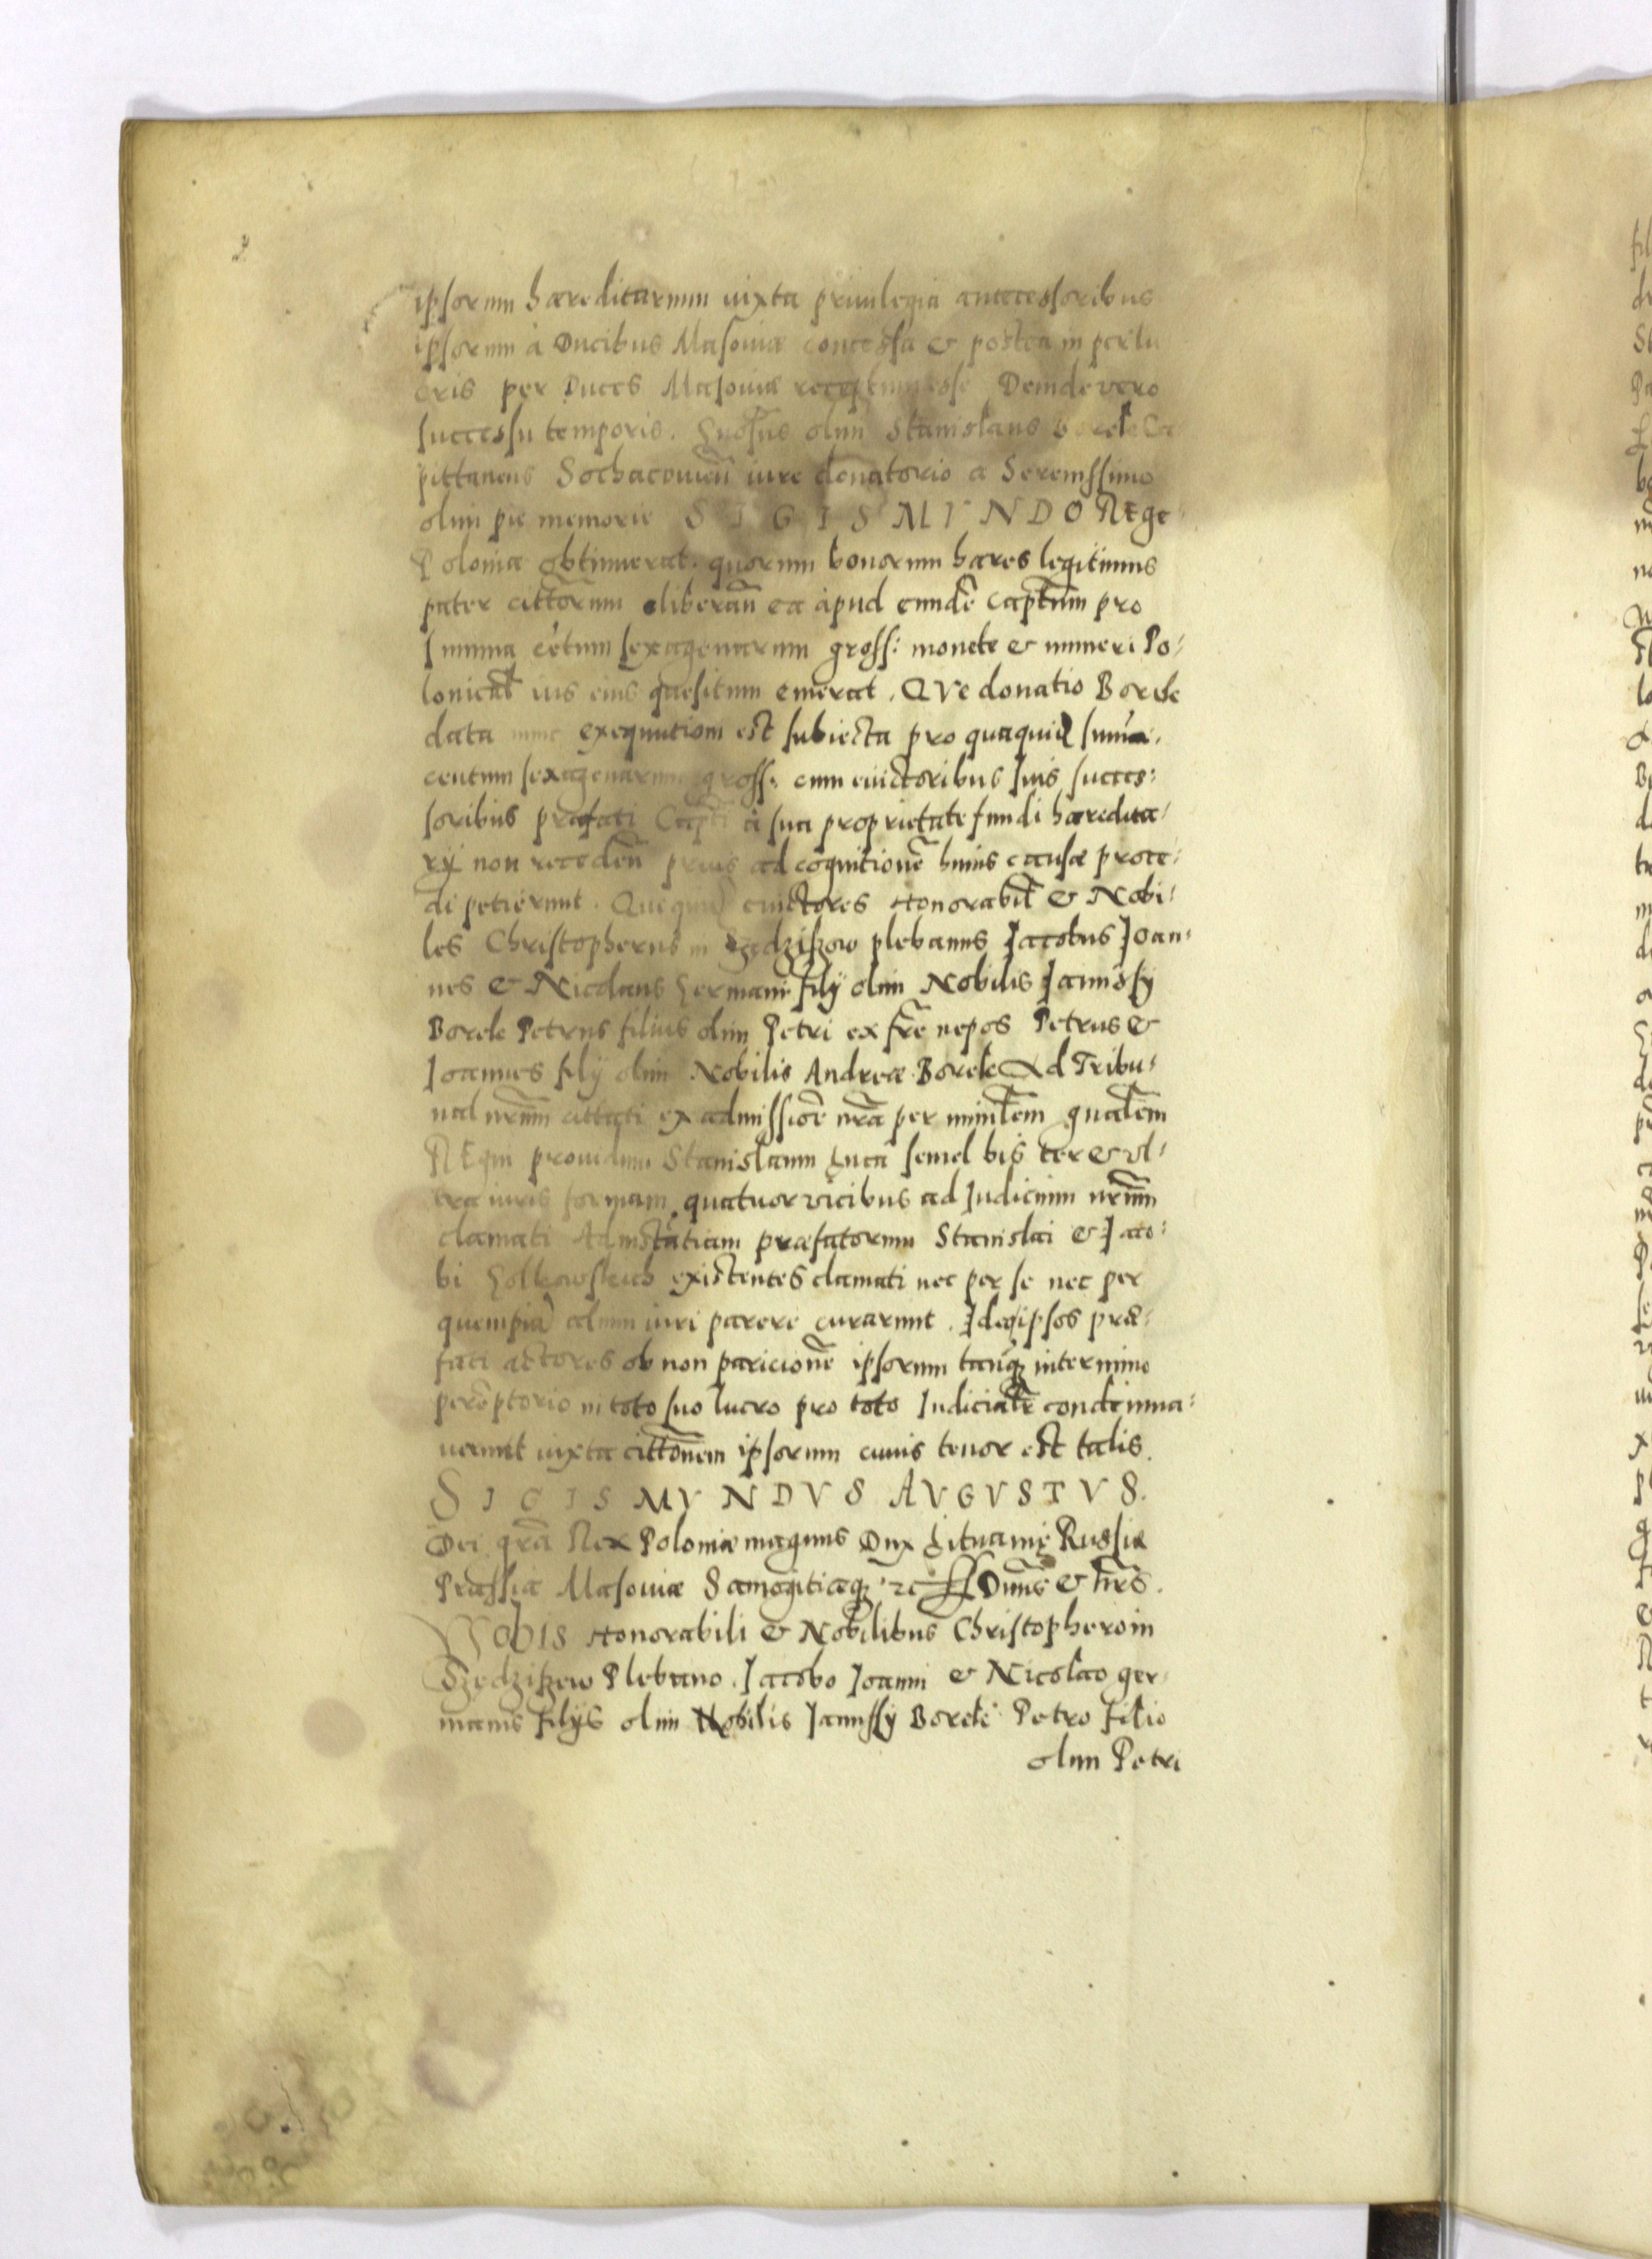 2
ipsorum hæreditarium iuxta priuilegia antecessoribus
ipsorum à Ducibus Masouiæ concessa & postea in
per Duces Masouiæ receptum esse Deinde vero
successu temporis. olim Stanislaus Borek Ca
pittaneus Sochacouieñ iure donatorio a Serenissimo
olim pie memorie SIGISMVNDO REge
Poloniæ obtinuerat. quorum bonorum hæres legitimus
pater cittatorum ea apud eundẽ Captũm pro
summa cẽtum sexagenarum gross: monete & numeri Po⸗
ius eius quæsitum emerat. QVe donatio Borek
data nunc exequutioni est subiecta pro quaquid sum̃a.
centum sexagenarum gross: cum euictoribus suis succes⸗
soribus præfati Capti à sua proprietate fundi hæredita⸗
rÿ non recedeñ prius ad cognitionẽ huius causæ proce⸗
di petierunt. euictores Honorabił & Nobi⸗
les Christopherus in plebanus Jacobus Joan⸗
nes & Nicolaus Germani filÿ olim Nobilis Janussÿ
Borek Petrus filius olim Petri ex fr̃e nepos Petrus &
Joannes filÿ olim Nobilis Andreæ Borek Ad Tribu⸗
nal nr̃um cittati ex admissiõe nr̃a per minilẽm gnalẽm
REgni prouidum Stanislaum Luca semel bis ter & vl⸗
tra iuris formam quatuor vicibus ad Judicium nr̃um
clamati Ad instãtiam præfatorum Stanislai & Jaco⸗
bi existentes clamati nec per se nec per
quempiã alium iuri parere curarunt. Ideqipsos præ⸗
fati actores ob non paricionẽ ipsorum tanq̃ in termino
perẽptorio in toto suo lucro pro toto Judicialr̃ condemna⸗
uerunt iuxta cittõnem ipsorum cuius tenor est talis.
SIGISMVNDVS AVGVSTVS.
Dei gr̃a Rex Poloniæ magnus Dux Lituanię Russiæ
Prussiæ Masouiæ Samogitiæq3 Dnñs & hr̃es.
VOBIS Honorabili & Nobilibus Christophero in
Plebano. Jacobo Joanni & Nicolao ger
manis filÿs olim Nobilis Janussÿ Borek Petro filio
olim Petri